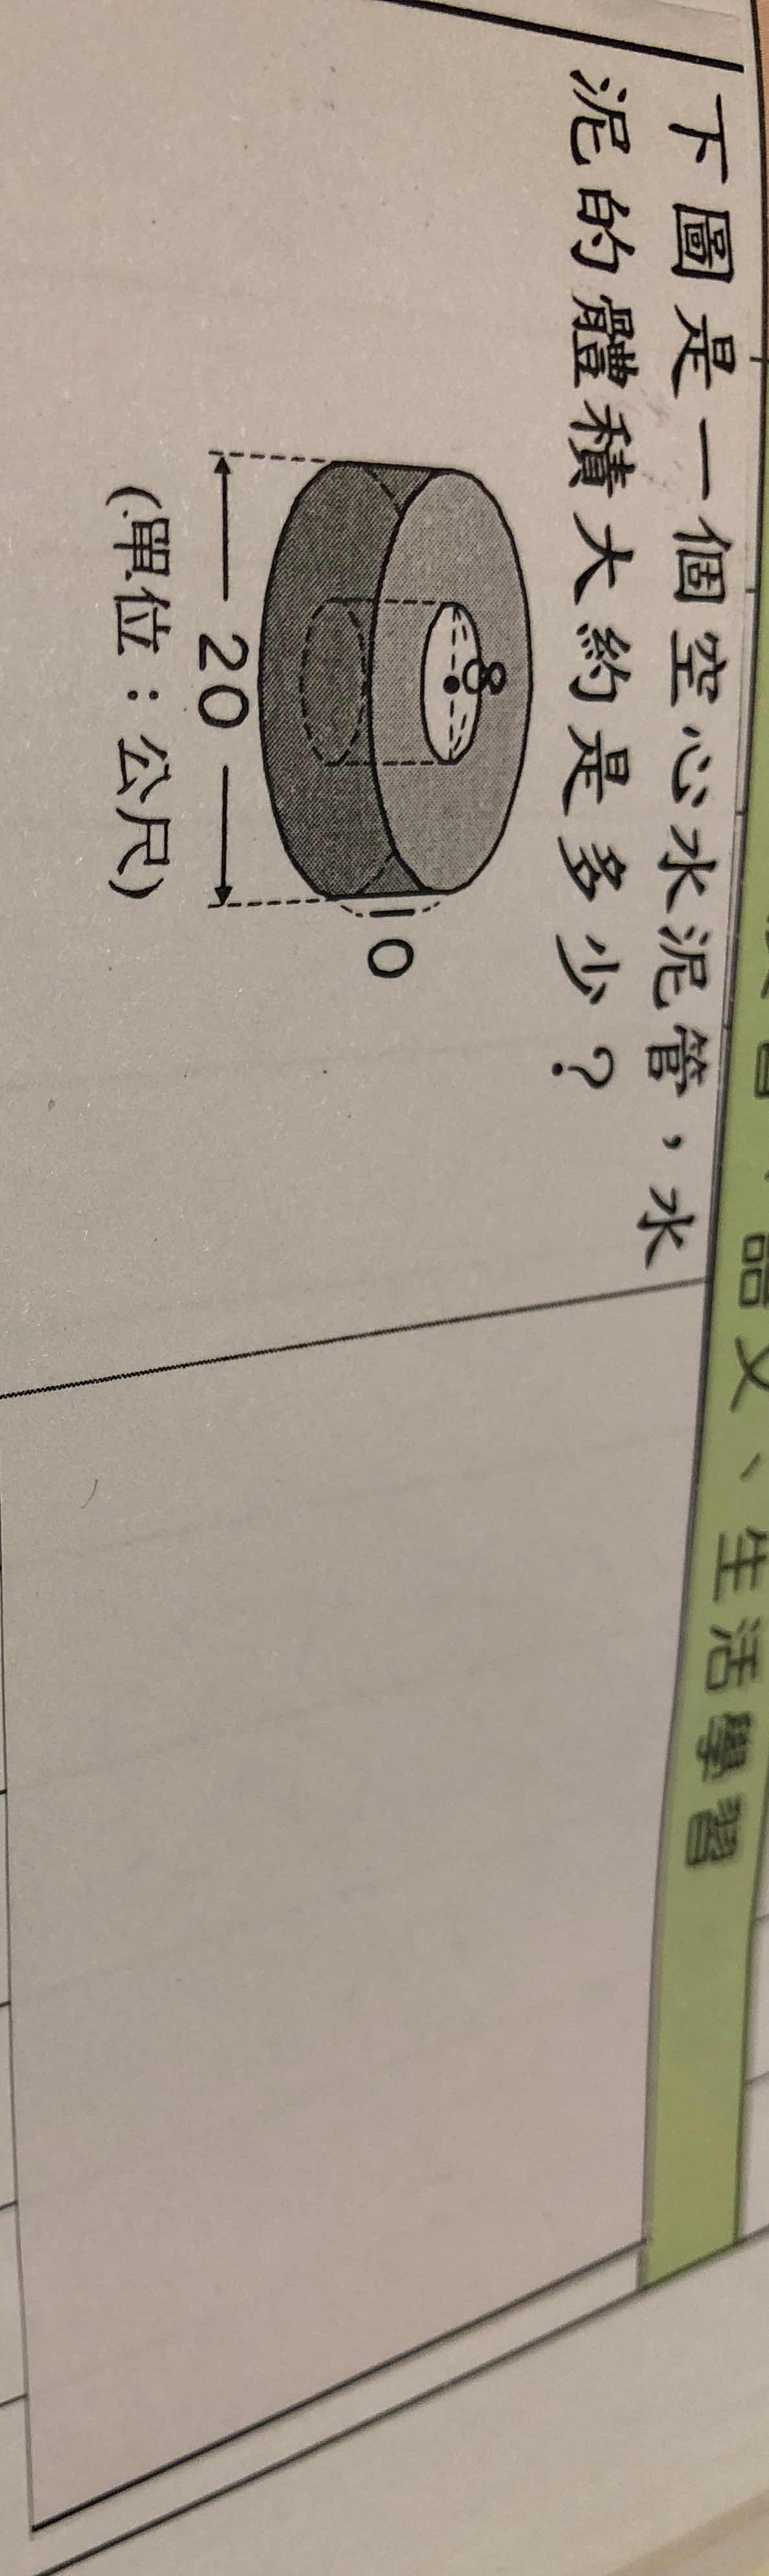 下圖是一個空心水泥管，水
泥的體積大約是多少？
8
10
20
(單位：公尺)
語文、生活學習